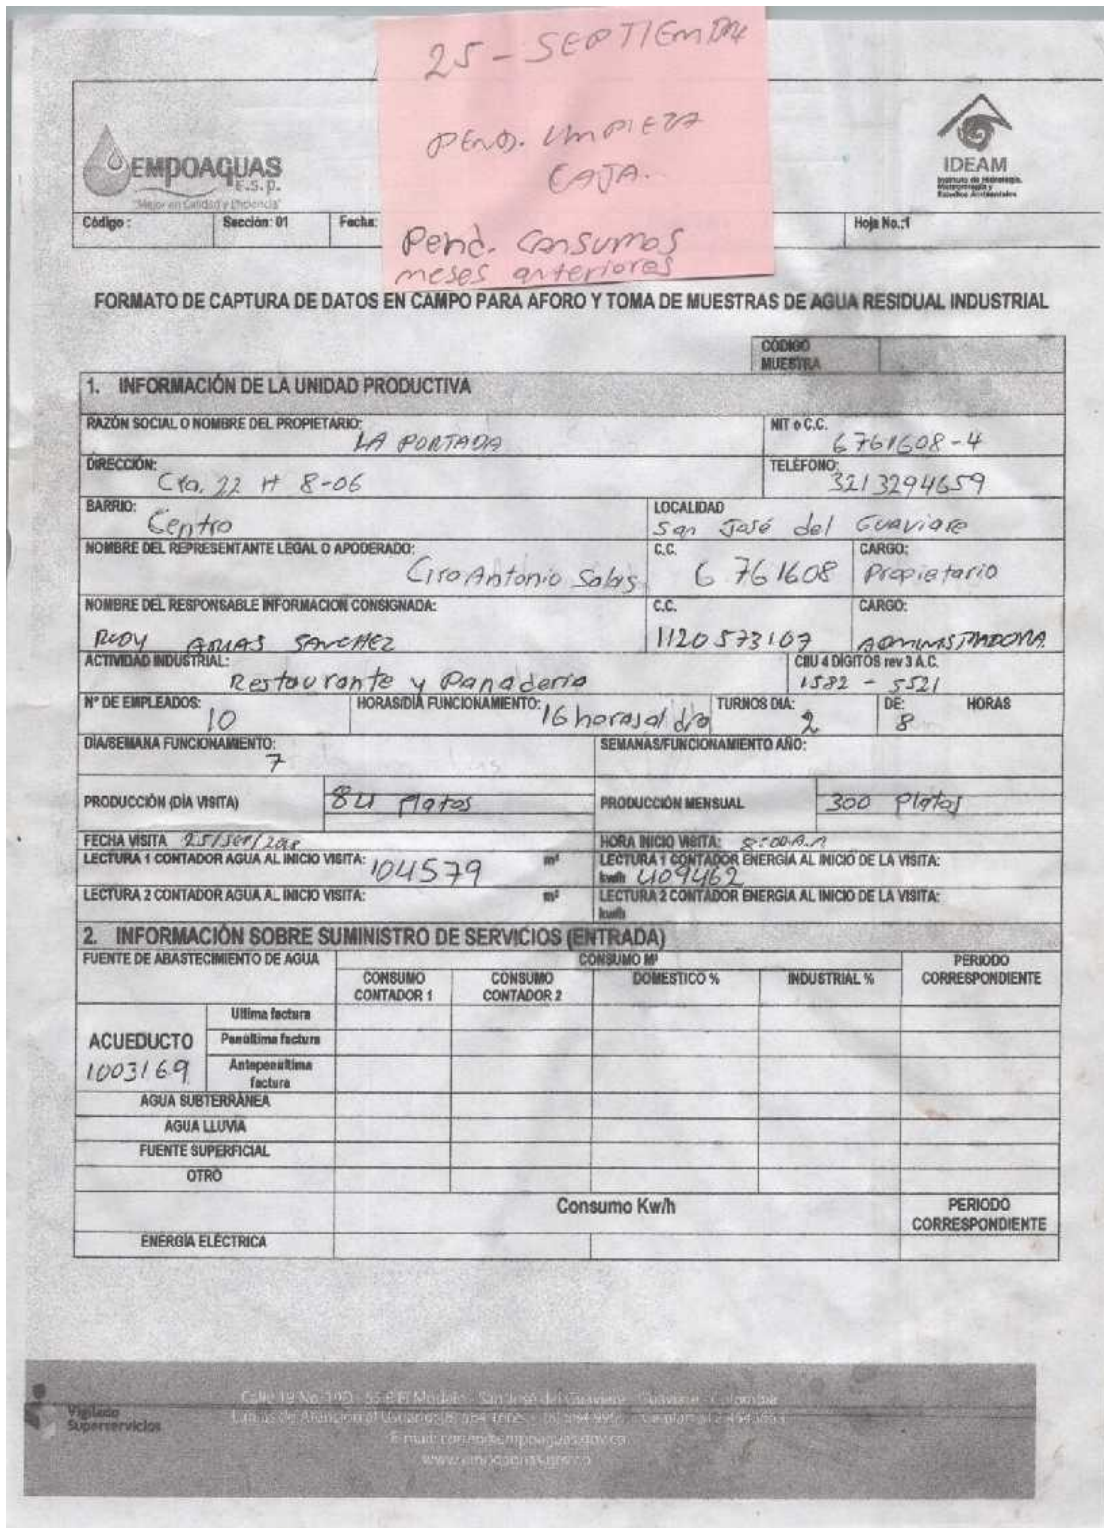 25 - SEPTIEMBRE
PEND. LIMPIEZA
CAJA.
Pend. Consumos
meses anteriores
EMPOAGUAS
E.S.P.
"Mejor en Calidad y Eficiencia"
IDEAM
Instituto de Hidrología,
Meteorología y
Estudios Ambientales
Código : Sección: 01 Fecha: Hoja No.:1
FORMATO DE CAPTURA DE DATOS EN CAMPO PARA AFORO Y TOMA DE MUESTRAS DE AGUA RESIDUAL INDUSTRIAL
CÓDIGO
MUESTRA
1. INFORMACIÓN DE LA UNIDAD PRODUCTIVA
RAZÓN SOCIAL O NOMBRE DEL PROPIETARIO: LA PORTADA NIT o C.C. 6761608-4
DIRECCIÓN: Cra. 22 # 8-06 TELÉFONO: 3213294659
BARRIO: Centro LOCALIDAD San José del Guaviare
NOMBRE DEL REPRESENTANTE LEGAL O APODERADO: Ciro Antonio C.C. 6 761608 CARGO: Propietario
NOMBRE DEL RESPONSABLE INFORMACION CONSIGNADA: RUDY ARIAS SANCHEZ C.C. 1120573107 CARGO: ADMINISTRADORA
ACTIVIDAD INDUSTRIAL: Restaurante y Panaderia CIIU 4 DÍGITOS rev 3 A.C. 1582 - 5521
N° DE EMPLEADOS: 10 HORAS/DÍA FUNCIONAMIENTO: 16 horas al dia TURNOS DIA: 2 DE: 8 HORAS
DÍA/SEMANA FUNCIONAMIENTO: 7 SEMANAS/FUNCIONAMIENTO AÑO:
PRODUCCIÓN (DÍA VISITA) 84 Platos PRODUCCIÓN MENSUAL 300 Platos
FECHA VISITA 25/SEP/2018 HORA INICIO VISITA: 8:00 A.M
LECTURA 1 CONTADOR AGUA AL INICIO VISITA: 104579 m³ LECTURA 1 CONTADOR ENERGÍA AL INICIO DE LA VISITA:
kwh 409462
LECTURA 2 CONTADOR AGUA AL INICIO VISITA: m³ LECTURA 2 CONTADOR ENERGIA AL INICIO DE LA VISITA:
kwh
2. INFORMACIÓN SOBRE SUMINISTRO DE SERVICIOS (ENTRADA)
FUENTE DE ABASTECIMIENTO DE AGUA CONSUMO M³ PERIODO CORRESPONDIENTE
CONSUMO CONTADOR 1 CONSUMO CONTADOR 2 DOMESTICO % INDUSTRIAL %
ACUEDUCTO
1003169
Ultima factura
Penúltima factura
Antepenúltima factura
AGUA SUBTERRÁNEA
AGUA LLUVIA
FUENTE SUPERFICIAL
OTRO
Consumo Kw/h PERIODO CORRESPONDIENTE
ENERGÍA ELÉCTRICA
Vigilado
Superservicios